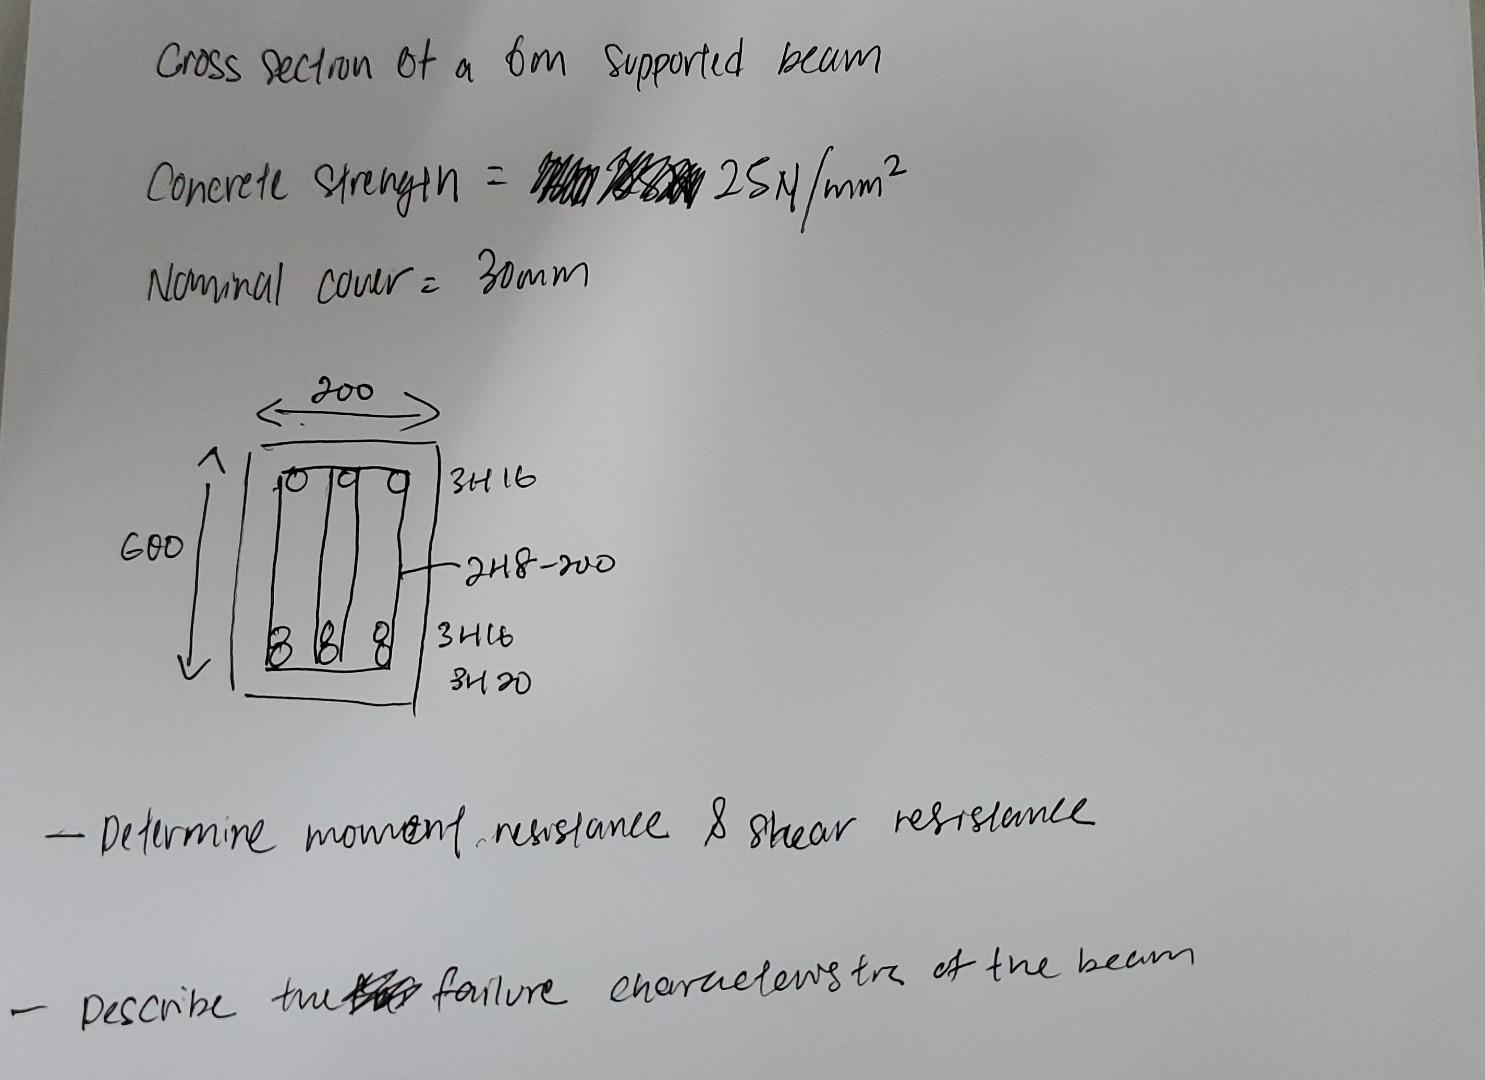 Cross section of a 6m supported beam
Concrete strength = 25N/mm²
Nominal cover = 30mm
200
3H16
600
2H8-200
3H16
3H20
- Determine moment resistance & shear resistance
- Describe the failure characteristic of the beam